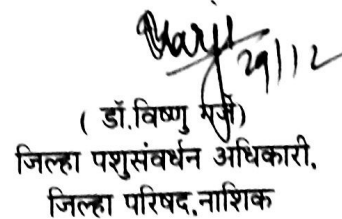 29/12
( डॉ.विष्णु गर्जे)
जिल्हा पशुसंवर्धन अधिकारी.
जिल्हा परिषद,नाशिक